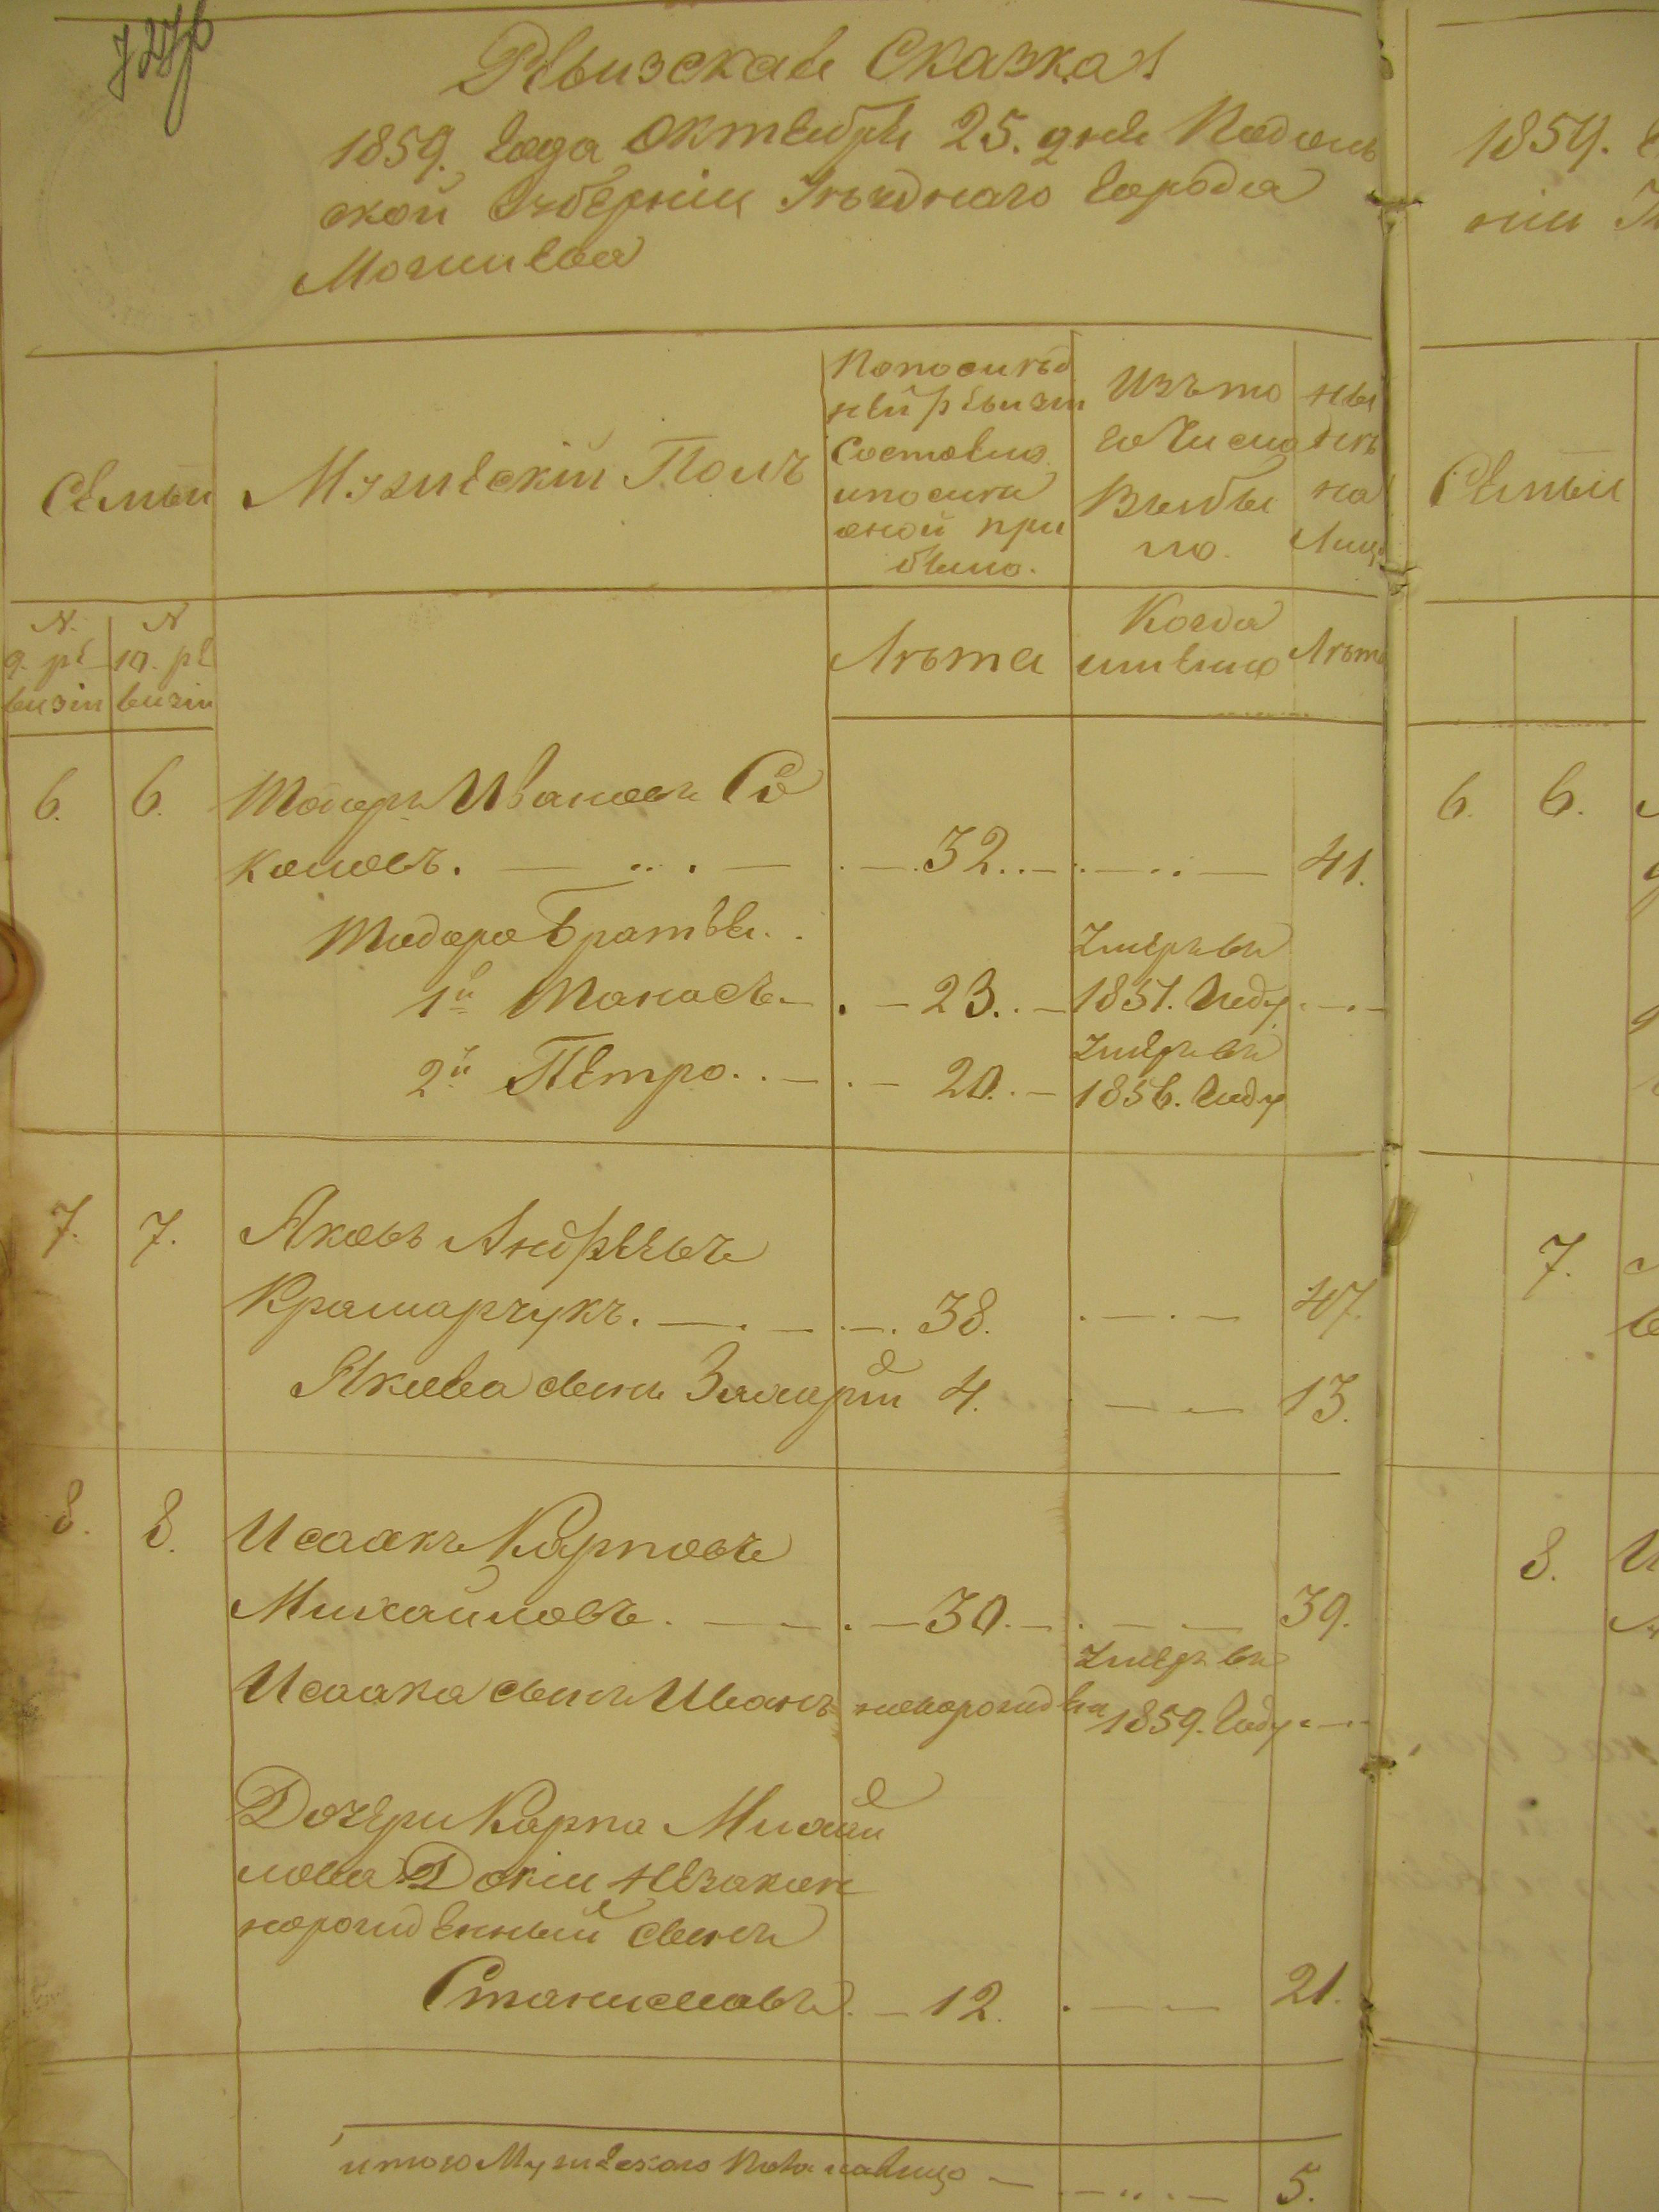 Ревизская Сказка
1859. года Октября 25. дня Подоль
ской Губернии Уѣзднаго города
Могилева
1859. г
нии
Семьи
Мужескій Полъ
Попослѣд
ней ревизи
Состояло
ипосли
оной при
было.
Изъ то
го Числа
Выбы
ло.
Ны
нѣ
на
Лицо
Семьи
N. 9. ре
визіи
N 10. ре
визіи
Лѣта
Когда
имянно
Лѣта
6. 6. Тодеръ Ивановъ Со
коловъ. 32. 41.
6. 6.
Тодора Братья.
1й Танасъ 23. Умеръ въ 1851. Году
2й Петро. 20. Умеръ въ 1856. Году
7. 7. Яковъ Андреевъ
Крамарчукъ. 38. 47.
7.
Якова сынъ Захарій 4. 13.
8. 8. Исаакъ Карповъ
Михайловъ. 30. 39.
8. И
Исаака сынъ Иванъ новорожденъ Умеръ въ 1859. Году
Дочери Карпа Михай
лова Докіи незакон
норожденный сынъ
Станиславъ. 12. 21.
итого Мужескаго Пола налицо 5.